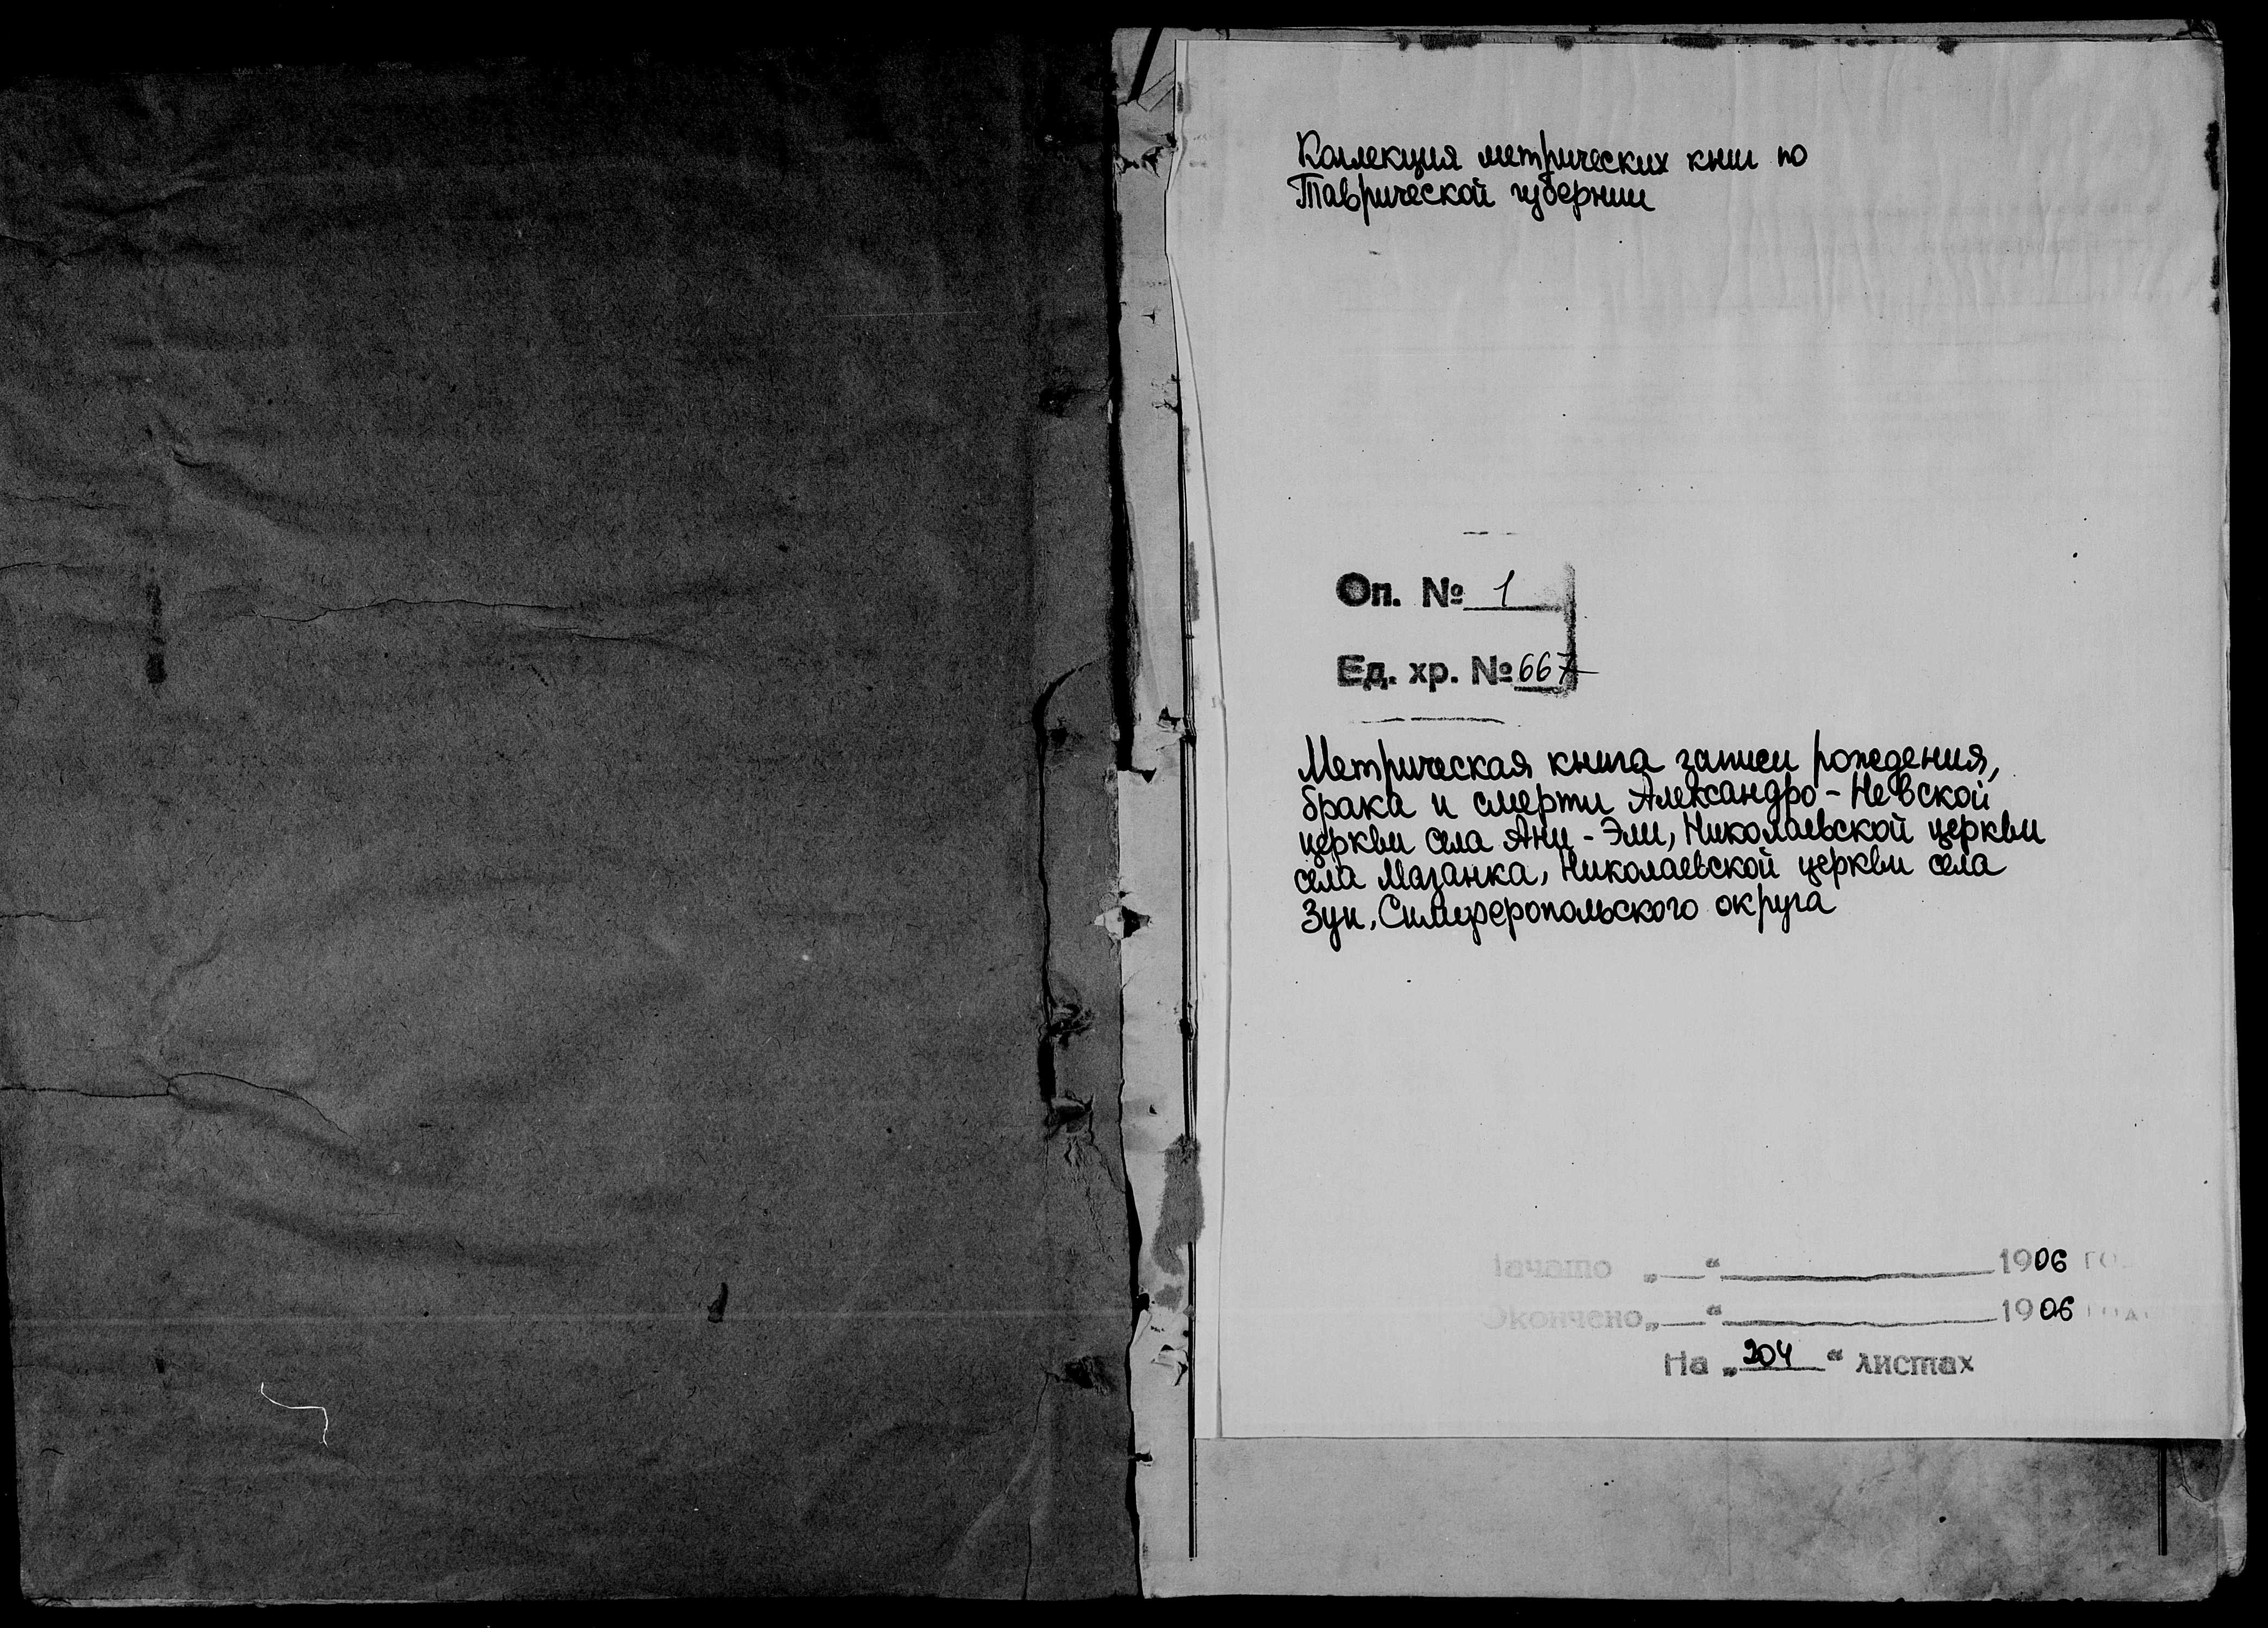 Коллекция метрических книг по
Таврической губернии
Оп. № 1
Ед. хр. № 667
Метрическая книга записи рождения,
брака и смерти Александро-Невской
церкви села Ани-Эли, Николаевской церкви
села Мазанка, Николаевской церкви села
Зуи, Симферопольского округа
Начато „ “ 1906 го
Окончено „ “ 1906 года
На „204“ листах